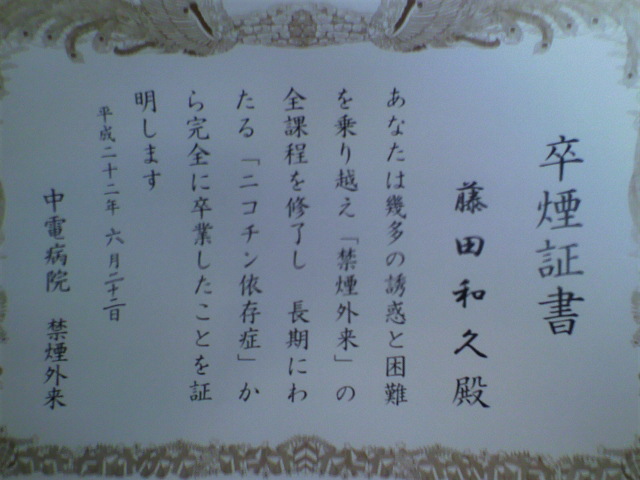 卒煙証書
藤田和久殿
あなたは幾多の誘惑と困難
を乗り越え「禁煙外来」の
全課程を修了し 長期にわ
たる「ニコチン依存症」か
ら完全に卒業したことを証
明します
平成二十二年 六月二十二日
中電病院 禁煙外来